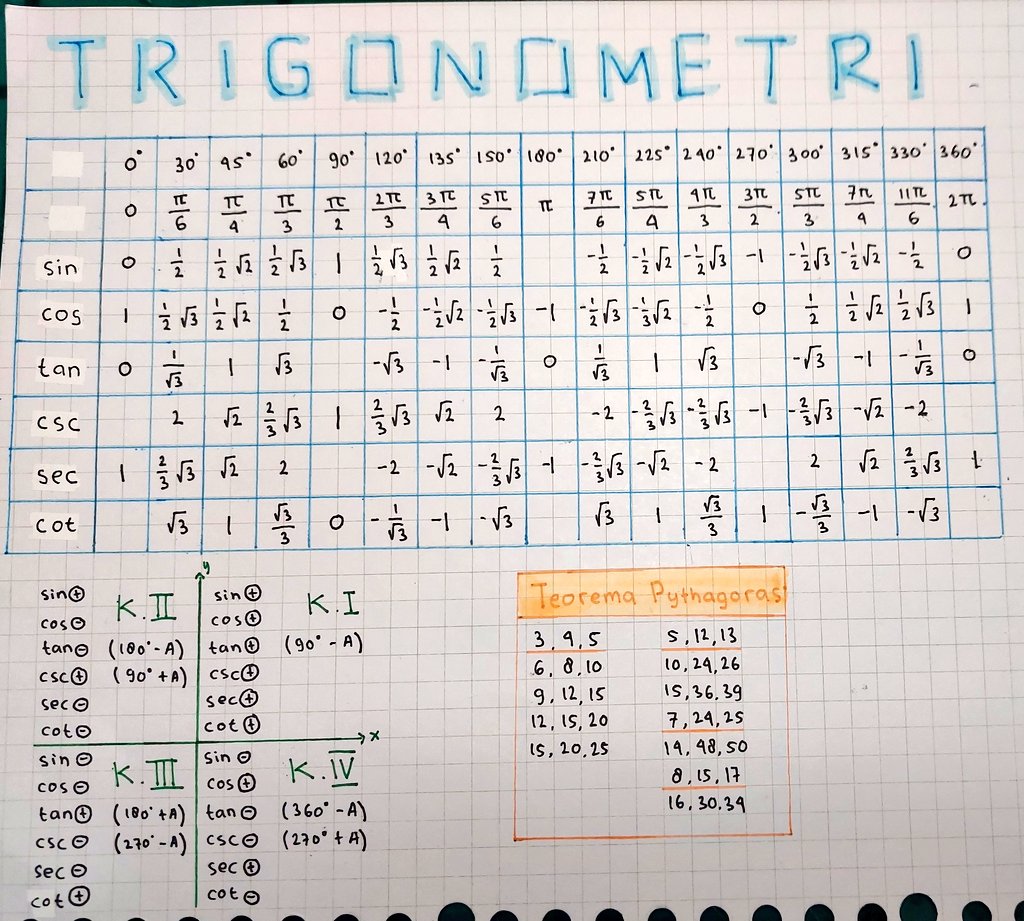 TRIGONOMETRI
0° 30° 45° 60° 90° 120° 135° 150° 180° 210° 225° 240° 270° 300° 315° 330° 360°
0 π/6 π/4 π/3 π/2 2π/3 3π/4 5π/6 π 7π/6 5π/4 4π/3 3π/2 5π/3 7π/4 11π/6 2π
sin 0 1/2 1/2√2 1/2√3 1 1/2√3 1/2√2 1/2 -1/2 -1/2√2 -1/2√3 -1 -1/2√3 -1/2√2 -1/2 0
cos 1 1/2√3 1/2√2 1/2 0 -1/2 -1/2√2 -1/2√3 -1 -1/2√3 -1/3√2 -1/2 0 1/2 1/2√2 1/2√3 1
tan 0 1/√3 1 √3 -√3 -1 -1/√3 0 1/√3 1 √3 -√3 -1 -1/√3 0
csc 2 √2 2/3√3 1 2/3√3 √2 2 -2 -2/3√3 -2/3√3 -1 -2/3√3 -√2 -2
sec 1 2/3√3 √2 2 -2 -√2 -2/3√3 -1 -2/3√3 -√2 -2 2 √2 2/3√3 1
cot √3 1 √3/3 0 -1/√3 -1 -√3 √3 1 √3/3 1 -√3/3 -1 -√3
y
K.II
sin⊕
cos⊖
tan⊖ (180°-A)
csc⊕ (90°+A)
sec⊖
cot⊖
K.I
sin⊕
cos⊕
tan⊕ (90°-A)
csc⊕
sec⊕
cot⊕
x
K.III
sin⊖
cos⊖
tan⊕ (180°+A)
csc⊖ (270°-A)
sec⊖
cot⊕
K.IV
sin⊖
cos⊕
tan⊖ (360°-A)
csc⊖ (270°+A)
sec⊕
cot⊖
Teorema Pythagoras
3, 4, 5
6, 8, 10
9, 12, 15
12, 15, 20
15, 20, 25
5, 12, 13
10, 24, 26
15, 36. 39
7, 24, 25
14, 48, 50
8, 15, 17
16. 30. 34